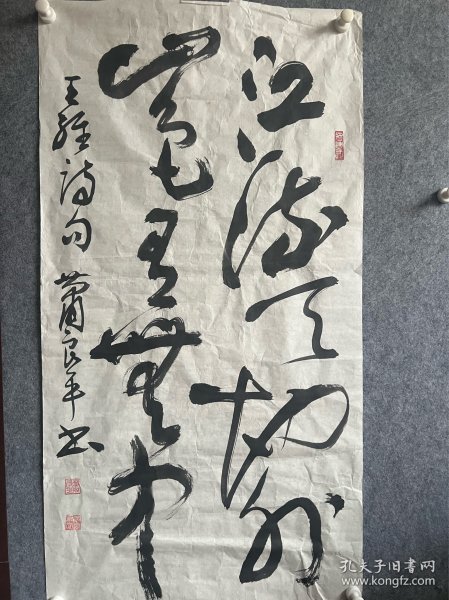 江流天地外
山色有无中
王维诗句 萧良平书
孔夫子旧书网
www.kongfz.com